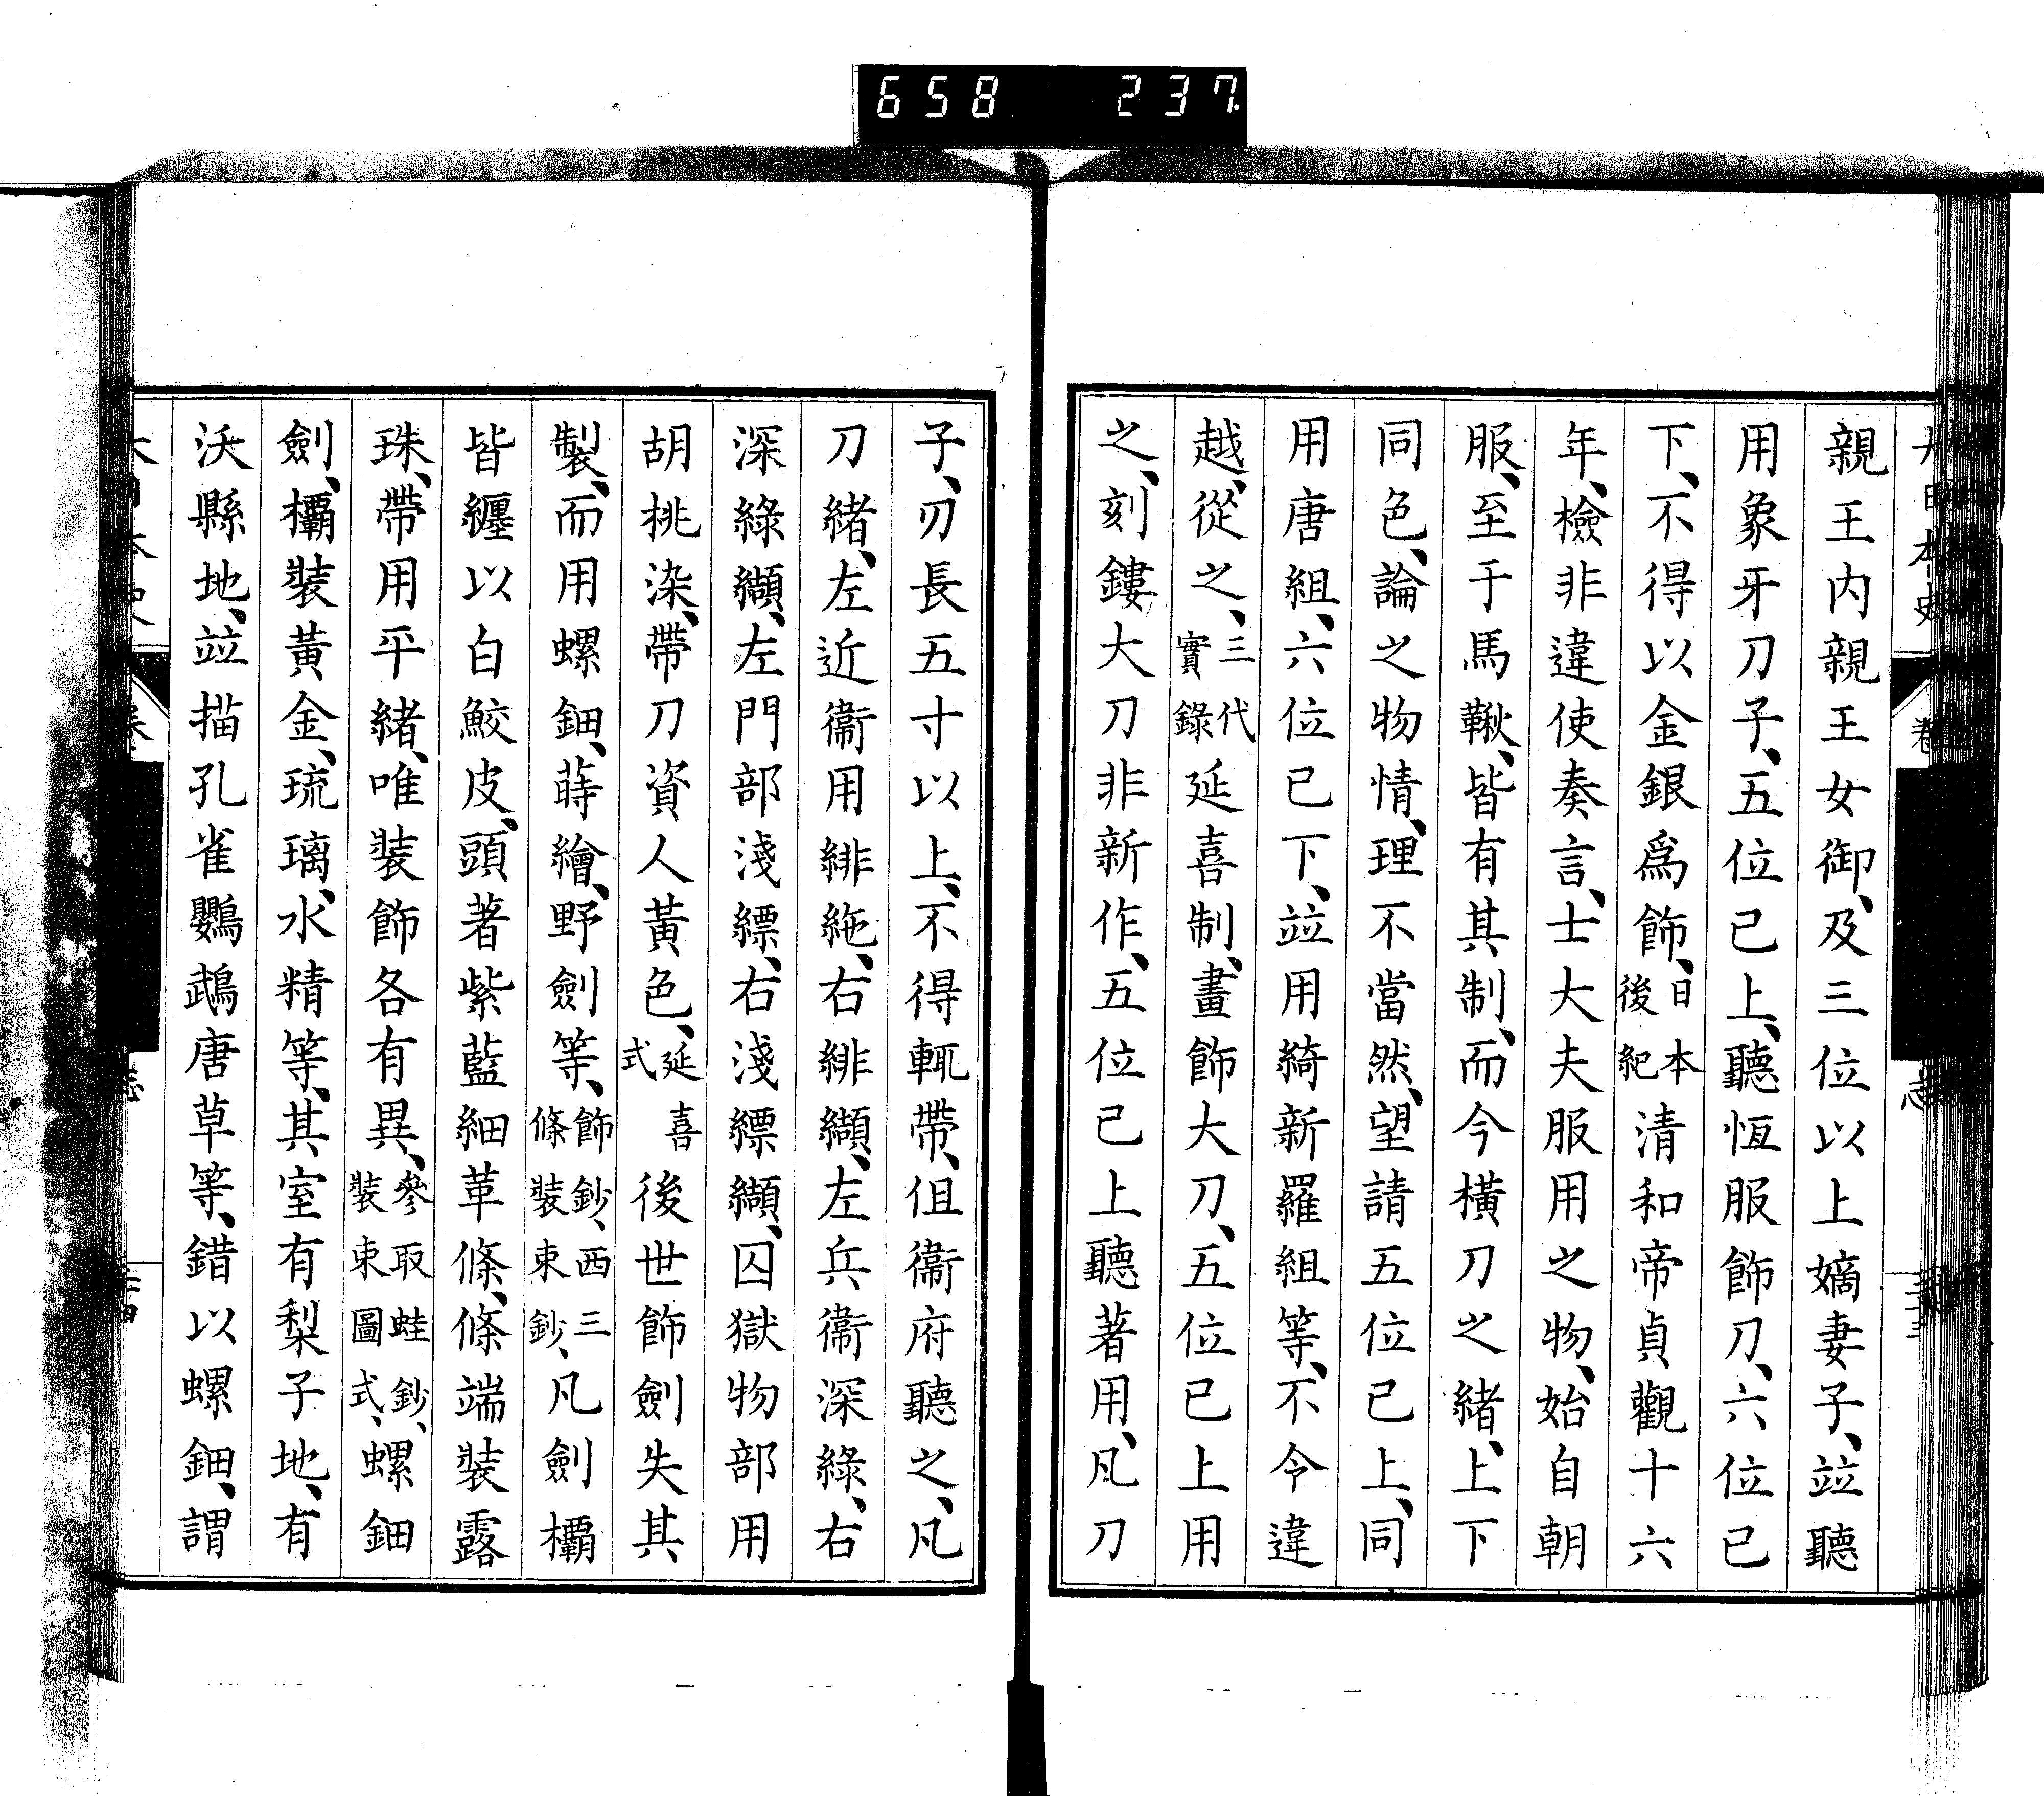 658 237
親王内親王女御、及三位以上嫡妻子、竝聽
用象牙刀子、五位已上、聽恆服飾刀、六位已
下、不得以金銀爲飾、日本後紀清和帝貞觀十六
年、檢非違使奏言、士大夫服用之物、始自朝
服、至于馬鞦、皆有其制、而今橫刀之緒、上下
同色、論之物情、理不當然、望請五位已上、同
用唐組、六位已下、竝用綺新羅組等、不令違
越、從之、三代實錄延喜制、畫飾大刀、五位已上用
之、刻鏤大刀非新作、五位已上聽著用、凡刀
子、刃長五寸以上、不得輒帶、但衞府聽之、凡
刀緒、左近衞用緋絁、右緋纈、左兵衞深綠、右
深綠纈、左門部淺縹、右淺縹纈、囚獄物部用
胡桃染、帶刀資人黃色、延喜式後世飾劍失其
製、而用螺鈿、蒔繪、野劍等、飾鈔、西三條裝束鈔、凡劍欛
皆纏以白鮫皮、頭著紫藍細革條、條端裝露
珠、帶用平緒、唯裝飾各有異、參取蛙鈔、裝束圖式、螺鈿
劍、欛裝黃金、琉璃、水精等、其室有梨子地、有
沃縣地、竝描孔雀鸚鵡唐草等、錯以螺鈿、謂